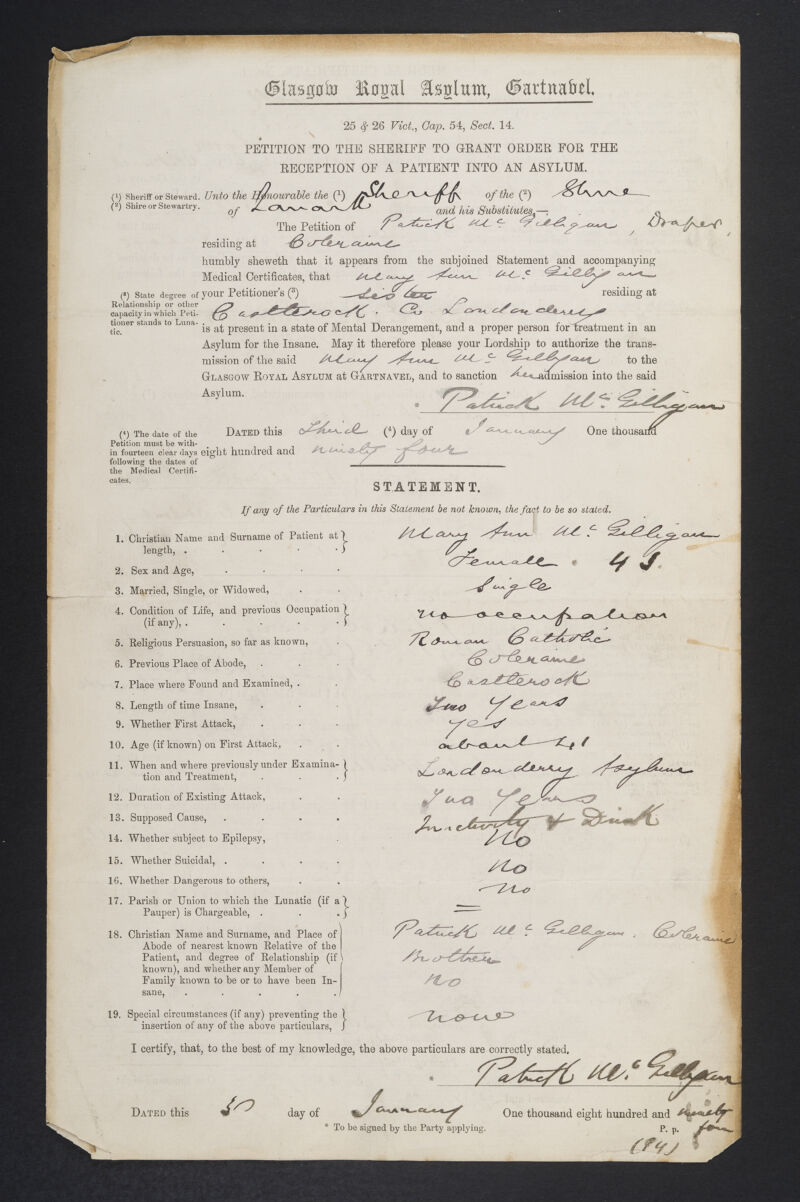 Glasgow Royal Asylum, Gartnavel.
25 & 26 Vict., Cap. 54, Sect. 14.
PETITION TO THE SHERIFF TO GRANT ORDER FOR THE
RECEPTION OF A PATIENT INTO AN ASYLUM.
(¹) Sheriff or Steward.
(²) Shire or Stewartry.
Unto the Honourable the (¹) Sheriff of the (²) Shire
of Lanark and his Substitutes,—
The Petition of Patrick Mc Gilligan, Draper,
residing at Coleraine
humbly sheweth that it appears from the subjoined Statement and accompanying
Medical Certificates, that Mary Ann Mc Gilligan
(³) State degree of
Relationship or other
capacity in which Peti-
tioner stands to Luna-
tic.
your Petitioner's (³) Sister residing at
Castlerock. Co Londonderry
is at present in a state of Mental Derangement, and a proper person for treatment in an
Asylum for the Insane. May it therefore please your Lordship to authorize the trans-
mission of the said Mary Ann Mc Gilligan to the
GLASGOW ROYAL ASYLUM at GARTNAVEL, and to sanction her admission into the said
Asylum.
* Patrick Mc Gilligan
(⁴) The date of the
Petition must be with-
in fourteen clear days
following the dates of
the Medical Certifi-
cates.
DATED this Third (⁴) day of January One thousand
eight hundred and ninety four
STATEMENT.
If any of the Particulars in this Statement be not known, the fact to be so stated.
1. Christian Name and Surname of Patient at
length, . Mary Ann Mc Gilligan
2. Sex and Age, Female . 43.
3. Married, Single, or Widowed, Single
4. Condition of Life, and previous Occupation
(if any), . no occupation
5. Religious Persuasion, so far as known, Roman Catholic
6. Previous Place of Abode, Coleraine
7. Place where Found and Examined, . Castlerock
8. Length of time Insane, Two Years
9. Whether First Attack, Yes
10. Age (if known) on First Attack, about 41
11. When and where previously under Examina-
tion and Treatment, Londonderry Asylum
12. Duration of Existing Attack, Two Years
13. Supposed Cause, Inactivity & Drink
14. Whether subject to Epilepsy, No
15. Whether Suicidal, . No
16. Whether Dangerous to others, No
17. Parish or Union to which the Lunatic (if a
Pauper) is Chargeable, . =
18. Christian Name and Surname, and Place of
Abode of nearest known Relative of the
Patient, and degree of Relationship (if
known), and whether any Member of
Family known to be or to have been In-
sane,
Patrick Mc Gilligan. Coleraine
Brother
No
19. Special circumstances (if any) preventing the
insertion of any of the above particulars, none
I certify, that, to the best of my knowledge, the above particulars are correctly stated.
* Patrick Mc Gilligan
DATED this day of January One thousand eight hundred and ninety
four
* To be signed by the Party applying.
P. p.
(94)